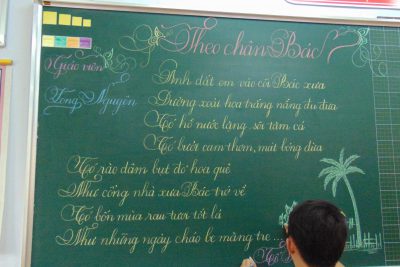 Theo chân Bác
Giáo viên
Nguyên
Anh dắt em vào cõi Bác xưa
Đường xoài hoa trắng nắng đu đưa
Có hồ nước lặng sôi tăm cá
Có bưởi cam thơm, mát bóng dừa
Có rào dâm bụt đỏ hoa quê
Như cổng nhà xưa Bác trở về
Có bốn mùa rau tươi tốt lá
Như những ngày cháo bẹ măng tre...
Tố